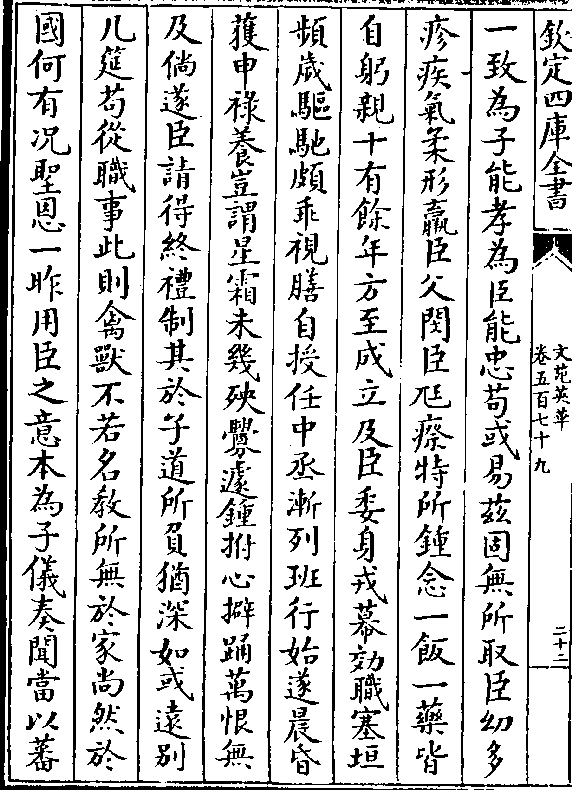 欽定四庫全書
文苑英華
卷五百七十九
二十二
一致為子能孝為臣能忠苟或易茲固無所取臣幼多
疹疾氣柔形羸臣父閔臣尫瘵特所鍾念一飯一藥皆
自躬親十有餘年方至成立及臣委身戎幕効職塞垣
頻歲驅馳頗乖視膳自授任中丞漸列班行始遂晨昏
獲申祿養豈謂星霜未幾殃舋遽鍾拊心擗踊萬恨無
及倘遂臣請得終禮制其於子道所負猶深如或遠別
几筵苟從職事此則禽獸不若名教所無於家尚然於
國何有况聖恩一昨用臣之意本為子儀奏聞當以蕃